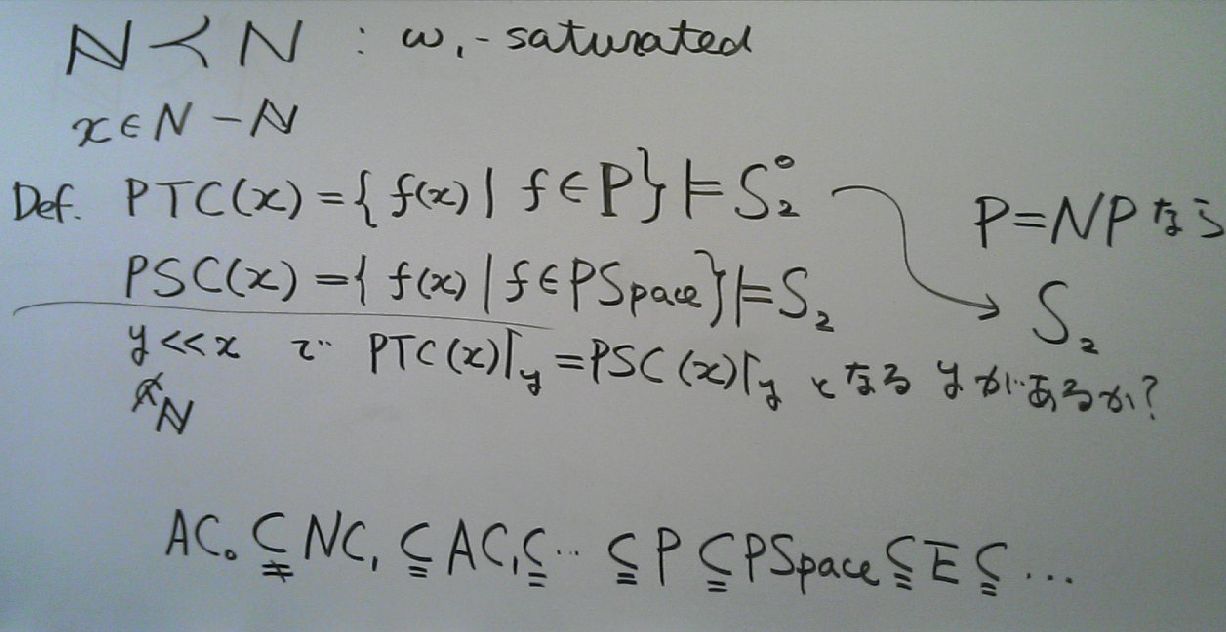 ℕ ≺ N : ω₁-saturated
x ∈ N − ℕ
Def. PTC(x) = { f(x) | f ∈ P } ⊨ S₂⁰
P=NPなら
PSC(x) = { f(x) | f ∈ PSpace } ⊨ S₂
S₂
y << x で PTC(x)↾y = PSC(x)↾y となる yがあるか?
∉ ℕ
AC₀ ⊊ NC₁ ⊆ AC₁ ⊆ ·· ⊆ P ⊆ PSpace ⊆ E ⊆ ...